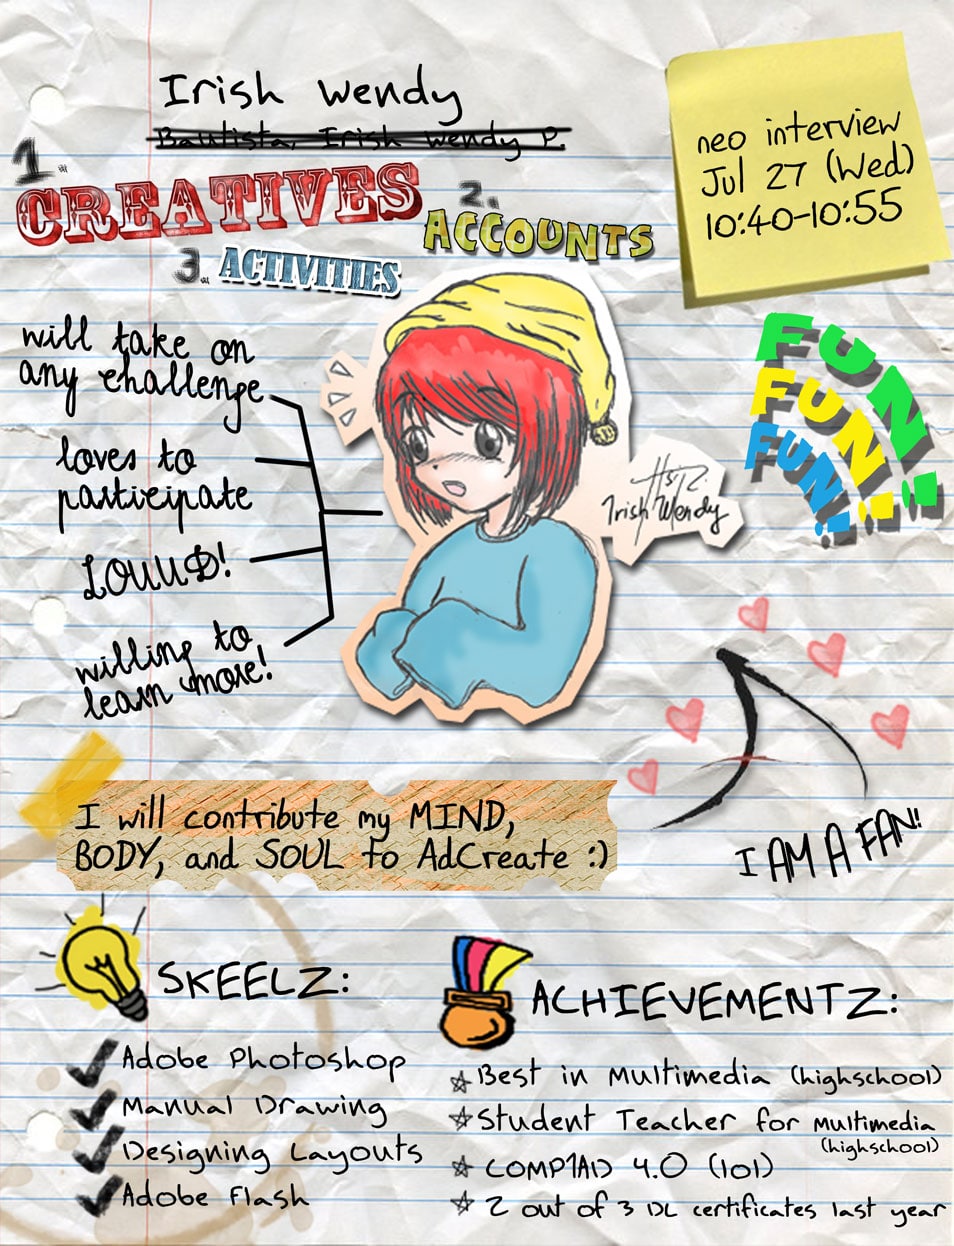 Irish Wendy
Bautista, Irish Wendy P.
neo interview
Jul 27 (Wed)
10:40-10:55
1.
CREATIVES
2.
ACCOUNTS
3.
ACTIVITIES
will take on
any challenge
loves to
participate
LOUUD!
willing to
learn more!
Irish Wendy
FUN!
FUN!
FUN!
I AM A FAN!
I will contribute my MIND,
BODY, and SOUL to AdCreate :)
SKEELZ:
Adobe Photoshop
Manual Drawing
Designing Layouts
Adobe Flash
ACHIEVEMENTZ:
Best in Multimedia (highschool)
Student Teacher for Multimedia
(highschool)
COMP1AD 4.0 (101)
2 out of 3 DL certificates last year